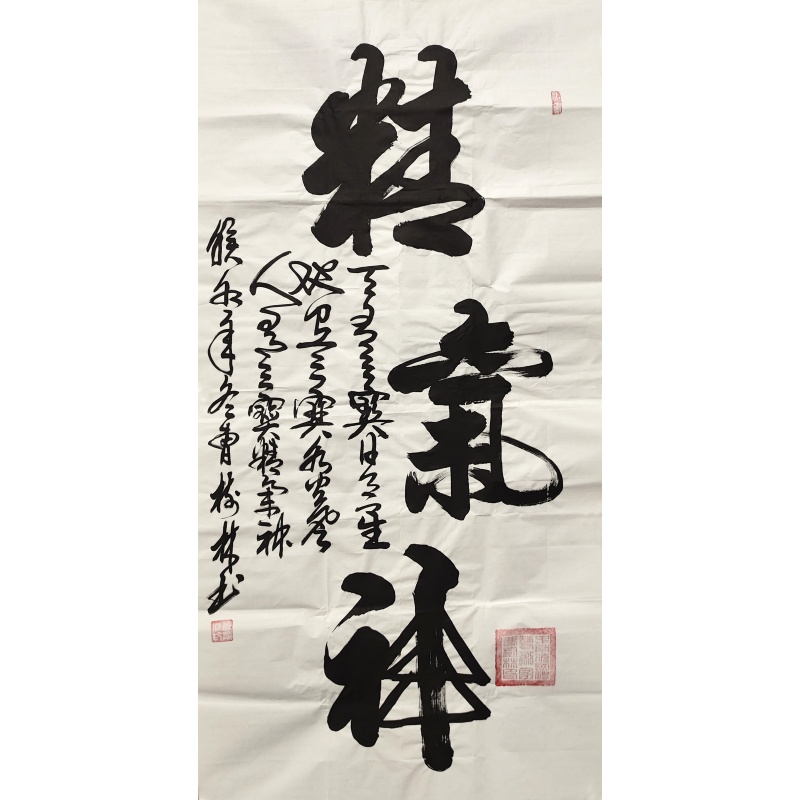 精氣神
天有三寶日月星
地有三寶水火風
人有三寶精氣神
癸卯年冬曹樹林書